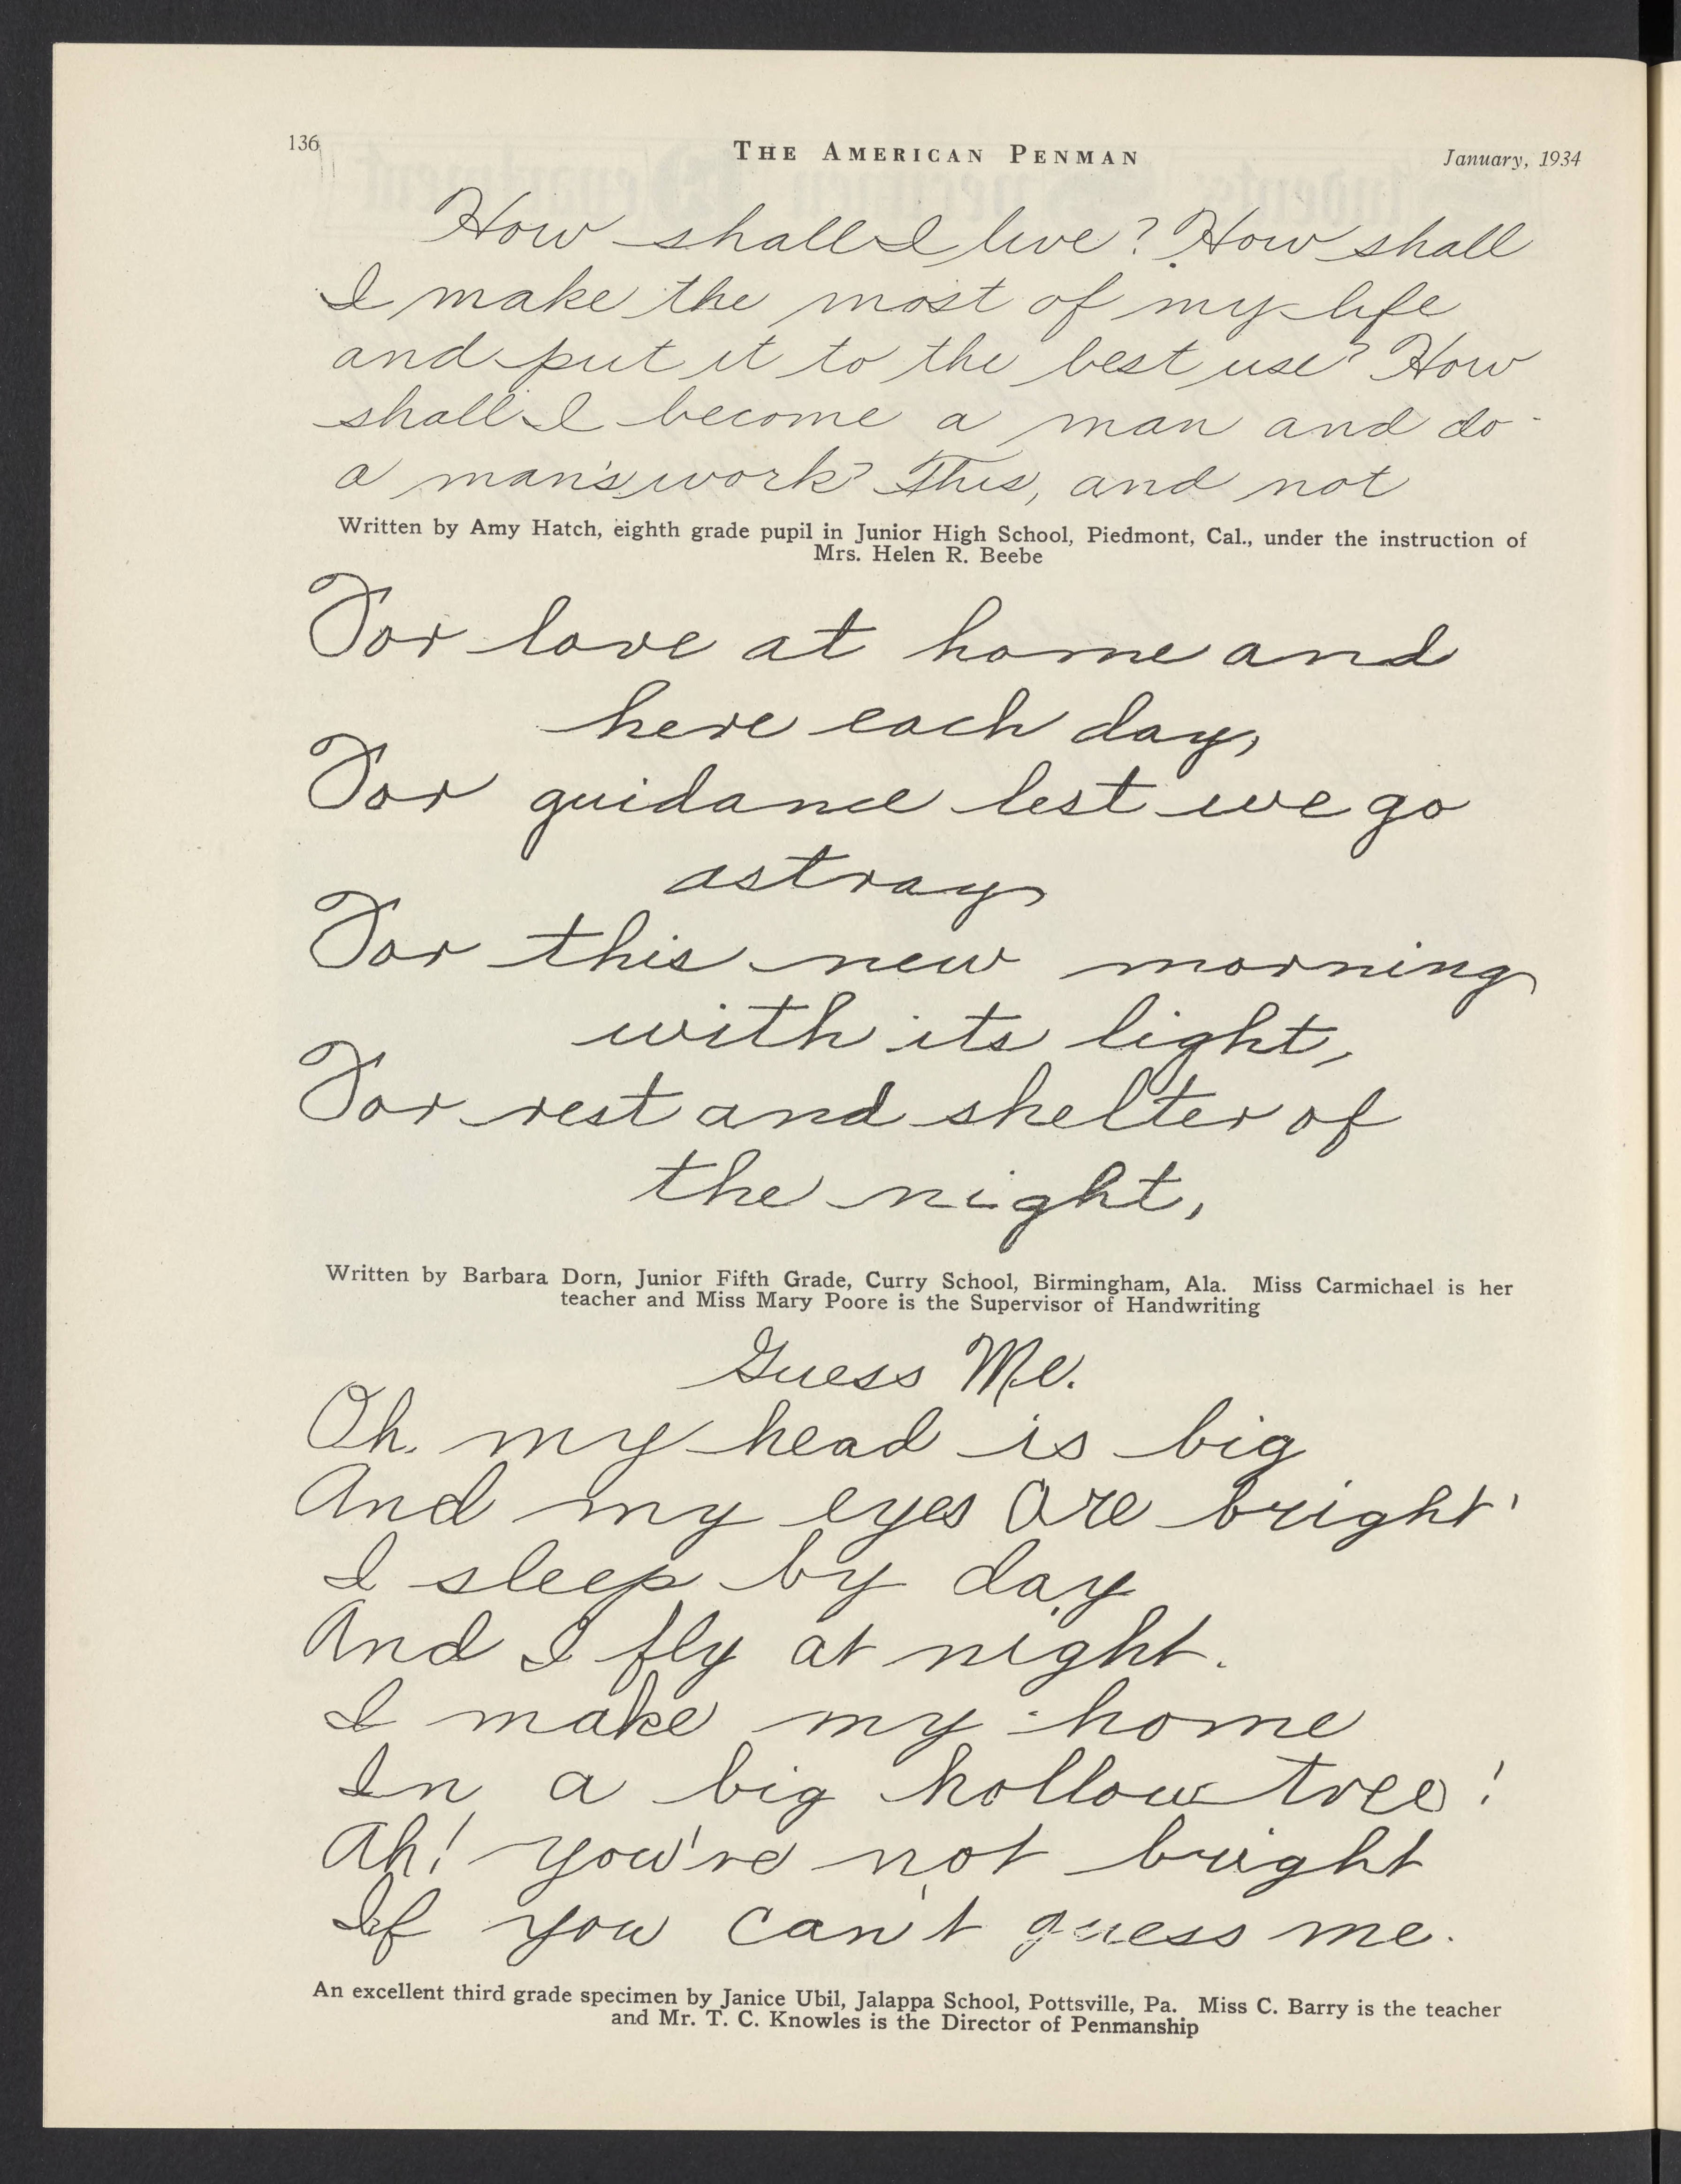 136
THE AMERICAN PENMAN
January, 1934
How shall I live? How shall
I make the most of my life
and put it to the best use? How
shall I become a man and do
a man's work? This, and not
Written by Amy Hatch, eighth grade pupil in Junior High School, Piedmont, Cal., under the instruction of
Mrs. Helen R. Beebe
For love at home and
here each day,
For guidance lest we go
astray,
For this new morning
with its light,
For rest and shelter of
the night,
Written by Barbara Dorn, Junior Fifth Grade, Curry School, Birmingham, Ala. Miss Carmichael is her
teacher and Miss Mary Poore is the Supervisor of Handwriting
Guess Me.
Oh. my head is big
And my eyes are bright'
I sleep by day
And I fly at night.
I make my home
In a big hollow tree!
Ah! you're not bright
If you can't guess me.
An excellent third grade specimen by Janice Ubil, Jalappa School, Pottsville, Pa. Miss C. Barry is the teacher
and Mr. T. C. Knowles is the Director of Penmanship